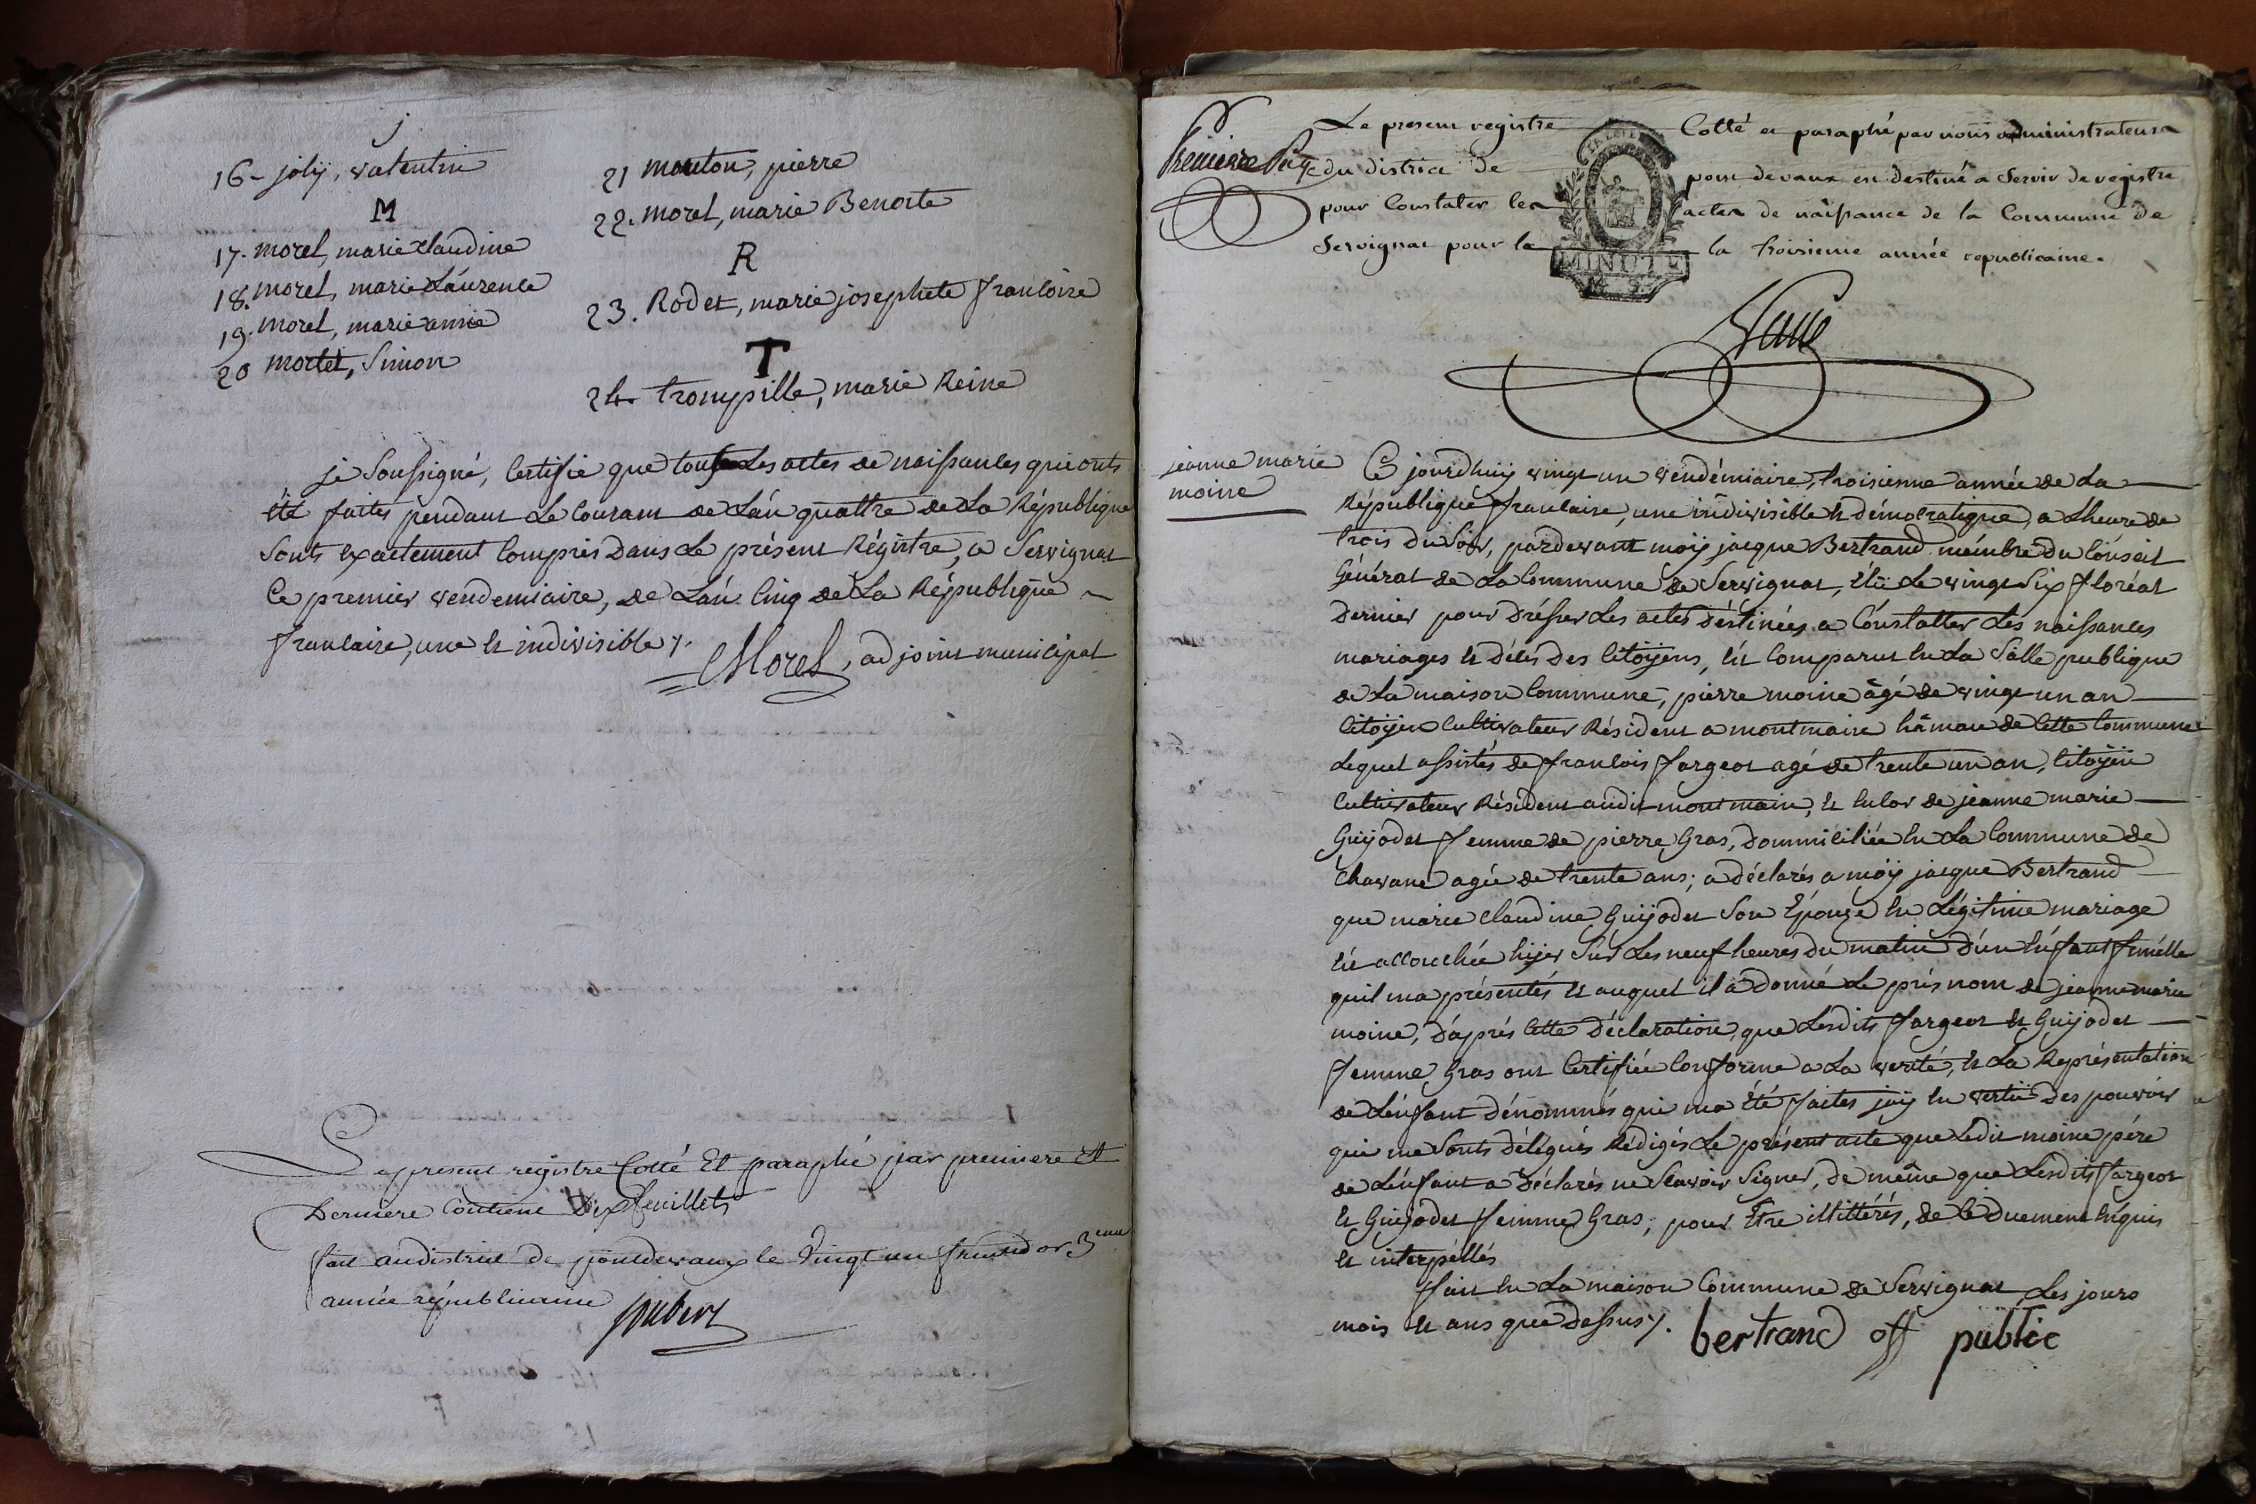 j
16- joly, valentin
M
17. morel, marie claudine
18. morel, marie Láurence
19. morel, marie anne
20 mortel, Simon
21 mouton, pierre
22. morel, marie Benoite
R
23. Rodet, marie josephete francoise
T
24. trompille, marie Reine
je Soussigné, Certifie que tous Les actes de naissances qui onts
été faites pendant Le Courant de L'án quattre de La République
Sonts exactement Compris Dans Le présent Régistre, a Servignat
Ce premier vendemiaire, de L'án Cinq de La République
francaise, une et indivisible
Morel, adjoint municipal
Le present registre Cotté Et paraphé par premiere Et
Derniere Contient Dix feuillets
fait au district de pontdevaux le Vingt un fructidor 3eme
année républicaine
Joubert
Premiere Page
Le present registre Cotté et paraphé par nous administrateur
du district de pont devaux est destiné a Servir de registre
pour Constater les actes de naissance de la Commune de
Servignat pour la la troisieme année republicaine.
MINUTE
jeanne marie
moine
Ce jourdhuij vingt un vendémiaire, troisienne année de La
République francaise, une indivisible et démocratique, a L'heure de
trois du Soir, pardevant moij jacque Bertrand mémbre du Cónseil
Général de La Commune de Servignat, élü Le vingt Six floréal
dernier pour drésser Les actes déstinées a Cónstatter Les naissances
mariages et décés des Citoÿens, ést Comparut En La Sâlle publique
de La maison Commune, pierre moine âgé de vingt un an
Citoÿen Cultivateur Résident a montmain hâmau de Cette Commune
Lequel assistés de francois fargeot agé de trente un an, Citoÿen
Cultivateur Résident audit montmain, et Enlor de jeanne marie
Guijodet femme de pierre Gras, dommiciliée En La Commune de
Chavane agée de trente ans; a déclarés a moij jacque Bertrand
que marie Claudine Guijodet Son Epouze En Légitime mariage
ést accouchée hijer Sur Les neuf heures du matin d'un Enfant fémélle
quil ma présentés et auquel il a donné Le prés nom de jeanne marie
moine, d'áprés Cette déclaration, que Lesdits fargeot et Guijodet
femme Gras ont Certifiée Conforme a La verité, et La Représentation
de L'énfant dénommés qui ma été faites jaij En vertü des pouvoir
qui me Sonts délégués Rédigés Le présent acte que Ledit moine pére
de L'énfant a déclarés ne Scavoir Signer, de même que Lesdits fargeot
et Guijodet femme Gras, pour être illittérés, de Ce duement Enquis
et interpéllés
fait En La maison Commune de Servignat Les jours
mois et ans que dessus
bertrand off public